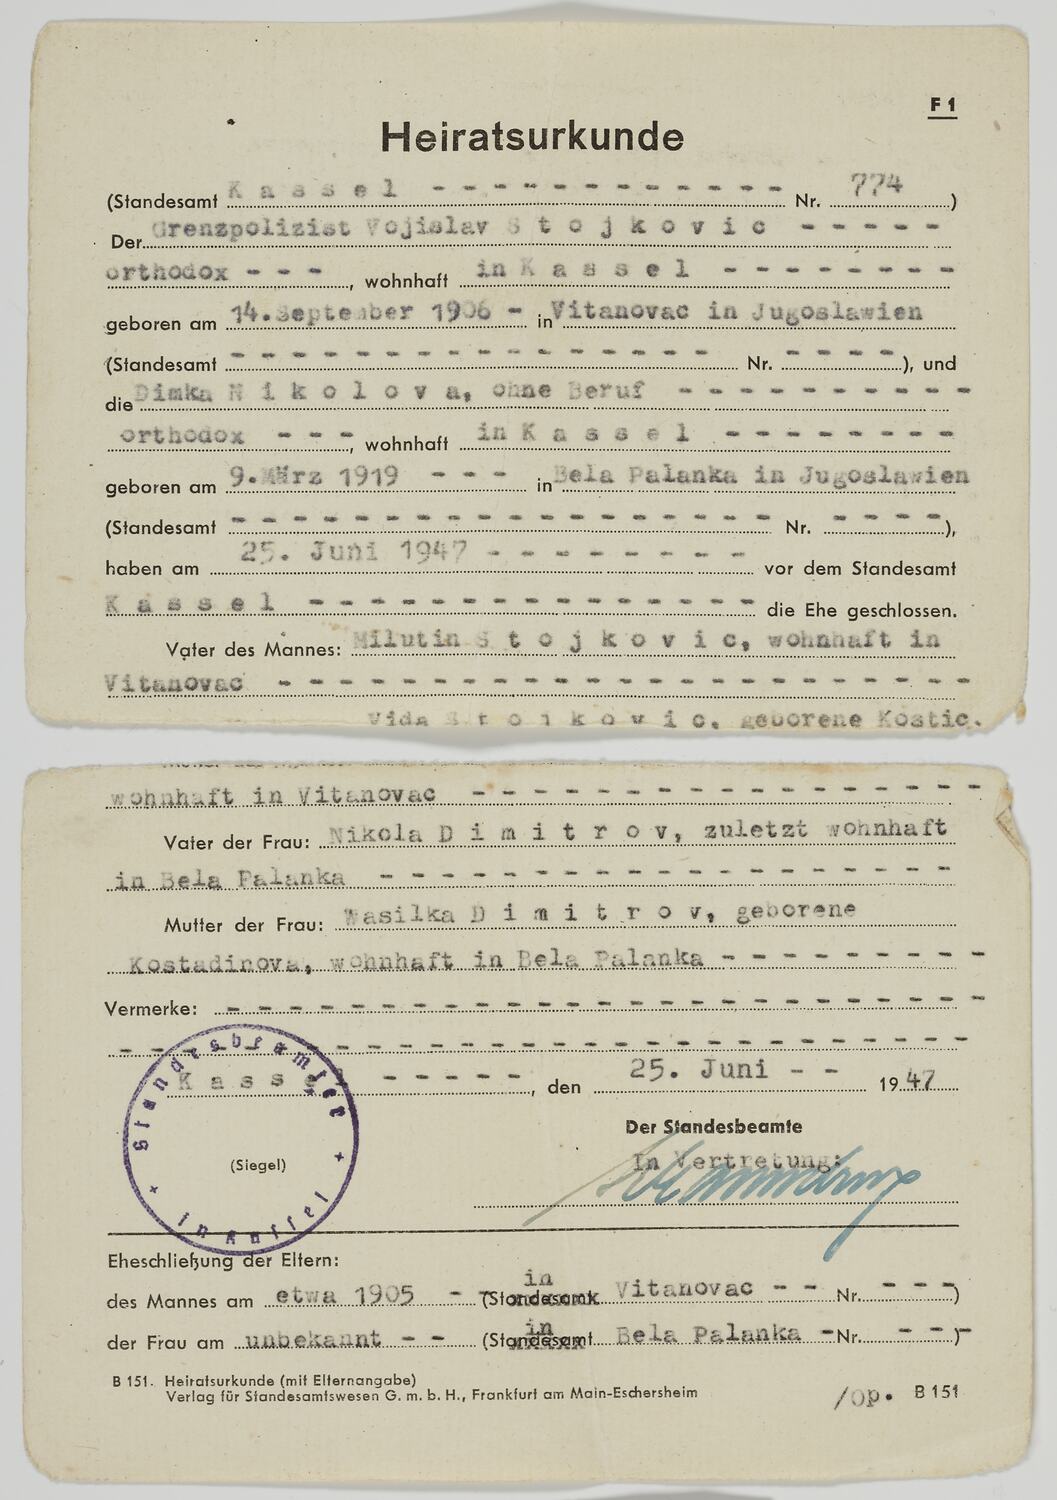 F 1
Heiratsurkunde
(Standesamt K a s s e l - - - - - - - - - - - - Nr. 774 )
Der Grenzpolizist Vojislav S t o j k o v i c - - - - -
orthodox - - - , wohnhaft in K a s s e l - - - - - - - -
geboren am 14.September 1906 - in Vitanovac in Jugoslawien
(Standesamt - - - - - - - - - - - - - - - - Nr. - - - - ), und
die Dimka N i k o l o v a, ohne Beruf - - - - - - - - - -
orthodox - - - -, wohnhaft in K a s s e l - - - - - - - -
geboren am 9.März 1919 - - - in Bela Palanka in Jugoslawien
(Standesamt - - - - - - - - - - - - - - - - - - Nr. - - - - ),
haben am 25. Juni 1947 - - - - - - - - vor dem Standesamt
K a s s e l - - - - - - - - - - - - - - - die Ehe geschlossen.
Vater des Mannes: Milutin S t o j k o v i c, wohnhaft in
Vitanovac - - - - - - - - - - - - - - - - - - - - - - -
Vida S t o j k o v i c, geborene Kostic,
wohnhaft in Vitanovac - - - - - - - - - - - - - - - - -
Vater der Frau: Nikola D i m i t r o v, zuletzt wohnhaft
in Bela Palanka - - - - - - - - - - - - - - - - - - -
Mutter der Frau: Wasilka D i m i t r o v, geborene
Kostadinova, wohnhaft in Bela Palanka - - - - - - - - -
Vermerke: - - - - - - - - - - - - - - - - - - - - - - - - -
- - - - - - - - - - - - - - - - - - - - - - - - - - -
Standesbeamter
K a s s e l - - - - - , den 25. Juni - - 19 47
Der Standesbeamte
In Vertretung:
(Siegel)
in Kassel
Eheschließung der Eltern:
in
des Mannes am etwa 1905 - - (Standesamt Vitanovac - - - - - Nr. )
in
der Frau am unbekannt - - (Standesamt Bela Palanka - Nr. - - - )
B 151. Heiratsurkunde (mit Elternangabe)
Verlag für Standesamtswesen G. m. b. H., Frankfurt am Main-Eschersheim
/Op. B 151